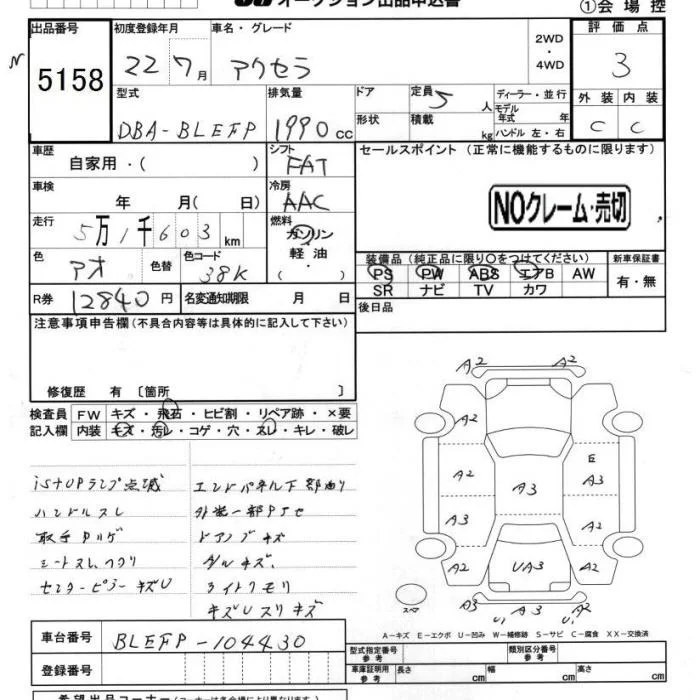 オークション出品申込書
①会場控
出品番号 5158
初度登録年月 22 7月
車名・グレード アクセラ
2WD・4WD
評価点 3
型式 DBA-BLEFP
排気量 1990cc
ドア
形状
定員 5人
積載 kg
ディーラー・並行
モデル年式 年
ハンドル 左・右
外装 C
内装 C
車歴 自家用・( )
シフト FAT
セールスポイント(正常に機能するものに限ります)
車検 年 月( 日)
冷房 AAC
NOクレーム・売切
走行 5万1千603km
燃料 ガソリン 軽油 ( ・ )
色 アオ 色替
色コード 38K
装備品(純正品に限り〇をつけてください)
新車保証書
PS PW ABS エアB AW
有・無
SR ナビ TV カワ
R券 12840円
名変通知期限 月 日
後日品
注意事項申告欄(不具合内容等は具体的に記入して下さい)
修復歴 有〔箇所 〕
検査員 FW キズ・飛石・ヒビ割・リペア跡・×要
記入欄 内装 キズ・汚レ・コゲ・穴・スレ・キレ・破レ
istopランプ点滅
ハンドルスレ
センターピラーキズU
エンドパネル下部曲り
外装一部
ドアノブキズ
ライトクモリ
キズUスリキズ
A2 A2
A2
A2 A3 E A3
A3 A2
A2 UA3 A2
A3 U1 A3 U1 A2
スペア
A-キズ E-エクボ U-凹み W-補修跡 S-サビ C-腐食 XX-交換済
車台番号 BLEFP-104430
登録番号
型式指定番号 参考
類別区分番号 参考
車庫証明用 参考 長さ cm 幅 cm 高さ cm
希望出品コーナー